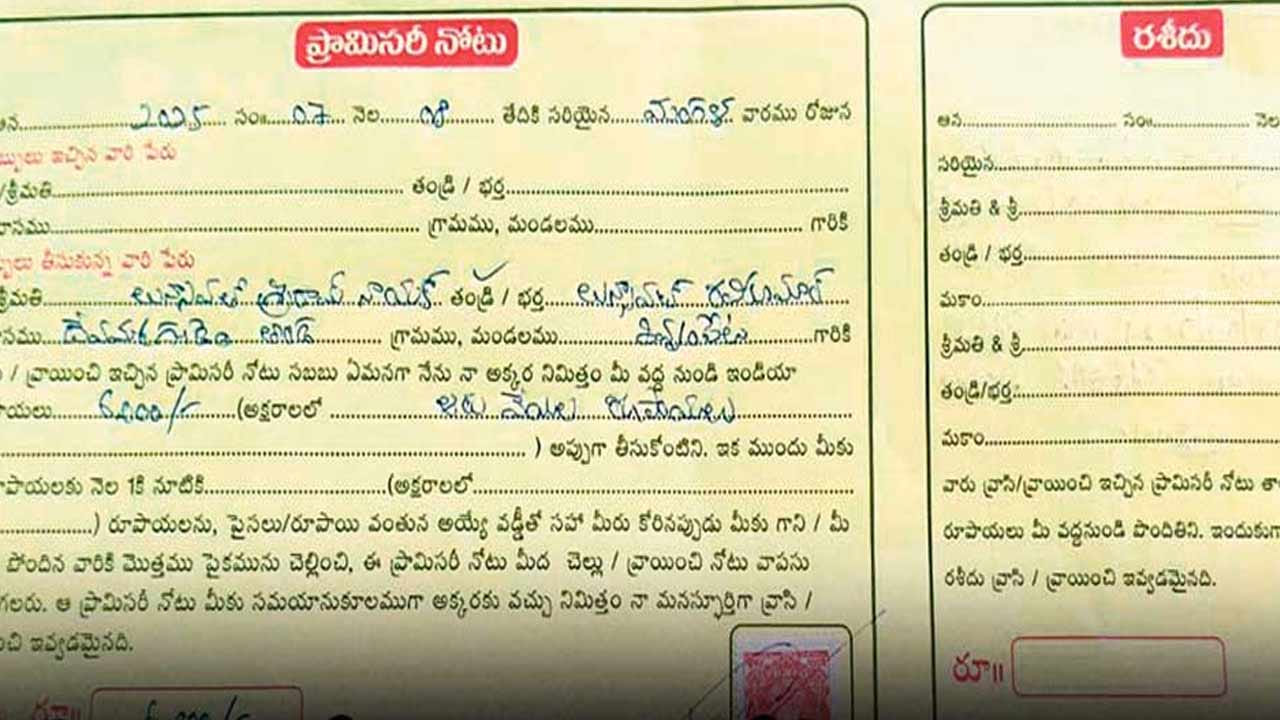 ప్రామిసరీ నోటు
2025 సం॥ 07 నెల 08 తేదికి సరియైన మంగళ వారము రోజున
ఇచ్చిన వారి పేరు
/శ్రీమతి తండ్రి / భర్త
గ్రామము, మండలము గారికి
తీసుకున్న వారి పేరు
శ్రీమతి శ్రీరామ్ నాయక్ తండ్రి / భర్త రవికుమార్
గ్రామము, మండలము గారికి
/ వ్రాయించి ఇచ్చిన ప్రామిసరీ నోటు సబబు ఏమనగా నేను నా అక్కర నిమిత్తం మీ వద్ద నుండి ఇండియా
6000/- (అక్షరాలలో ఆరు వేలు రూపాయలు
) అప్పుగా తీసుకోంటిని. ఇక ముందు మీకు
నెల 1కి నూటికి (అక్షరాలలో
) రూపాయలను, పైసలు/రూపాయి వంతున అయ్యే వడ్డీతో సహా మీరు కోరినప్పుడు మీకు గాని / మీ
పొందిన వారికి మొత్తము పైకమును చెల్లించి, ఈ ప్రామిసరీ నోటు మీద చెల్లు / వ్రాయించి నోటు వాపసు
గలరు. ఆ ప్రామిసరీ నోటు మీకు సమయానుకూలముగా అక్కరకు వచ్చు నిమిత్తం నా మనస్ఫూర్తిగా వ్రాసి /
ఇవ్వడమైనది.
రూ॥ 6000/-
రశీదు
ఆన సం॥ నెల
సరియైన
శ్రీమతి & శ్రీ
తండ్రి / భర్త
మకాం
శ్రీమతి & శ్రీ
తండ్రి/భర్త
మకాం
వారు వ్రాసి/వ్రాయించి ఇచ్చిన ప్రామిసరీ నోటు
రూపాయలు మీ వద్దనుండి పొందితిని. ఇందుకు
రశీదు వ్రాసి / వ్రాయించి ఇవ్వడమైనది.
రూ॥